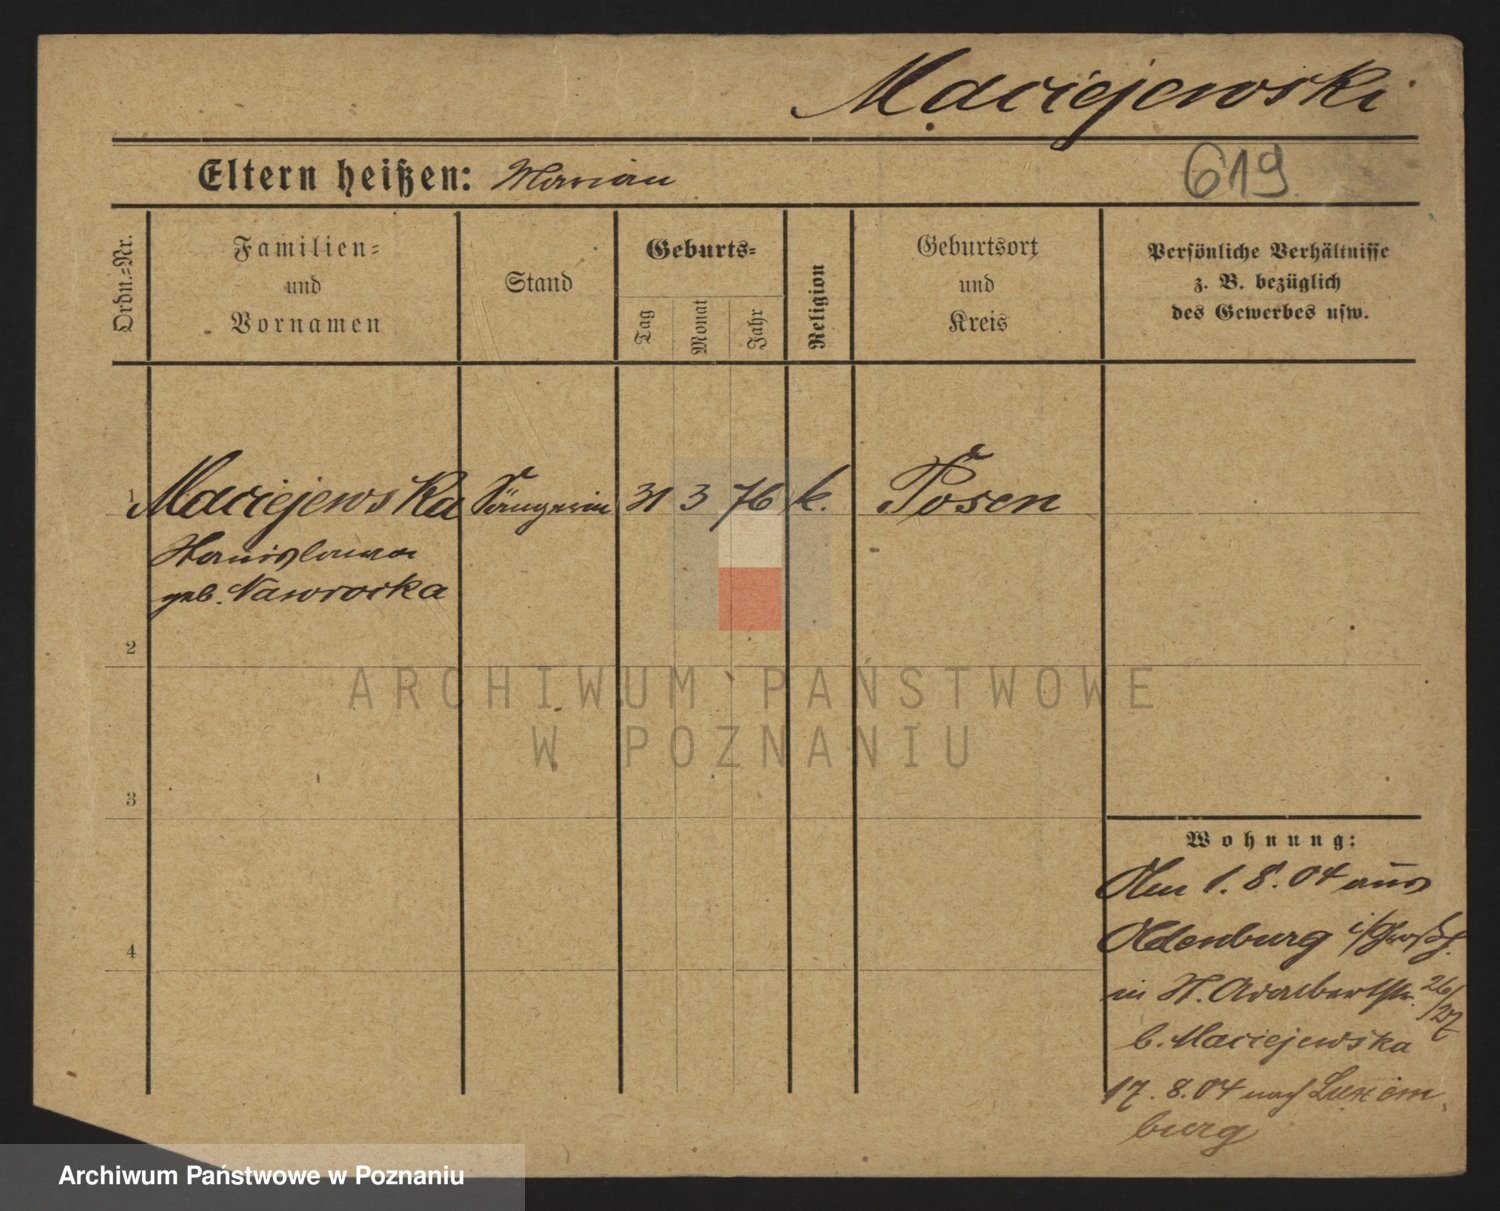 Maciejewski
Eltern heißen: Marian
619
Ordn.=Nr.
Familien=
und
Vornamen
Stand
Geburts=
Tag
Monat
Jahr
Religion
Geburtsort
und
Kreis
Persönliche Verhältnisse
z. B. bezüglich
des Gewerbes usw.
1 Maciejewska Sängerin 31 3 76 k. Posen
Stanislawa
geb. Nawrocka
2
ARCHIWUM PAŃSTWOWE
W POZNANIU
3
Wohnung:
Am 1. 8. 04 aus
Oldenburg i/Großh.
4
in St. Adalbertstr. 26/27
b. Maciejewska
17. 8. 04 nach Luxem
burg
Archiwum Państwowe w Poznaniu